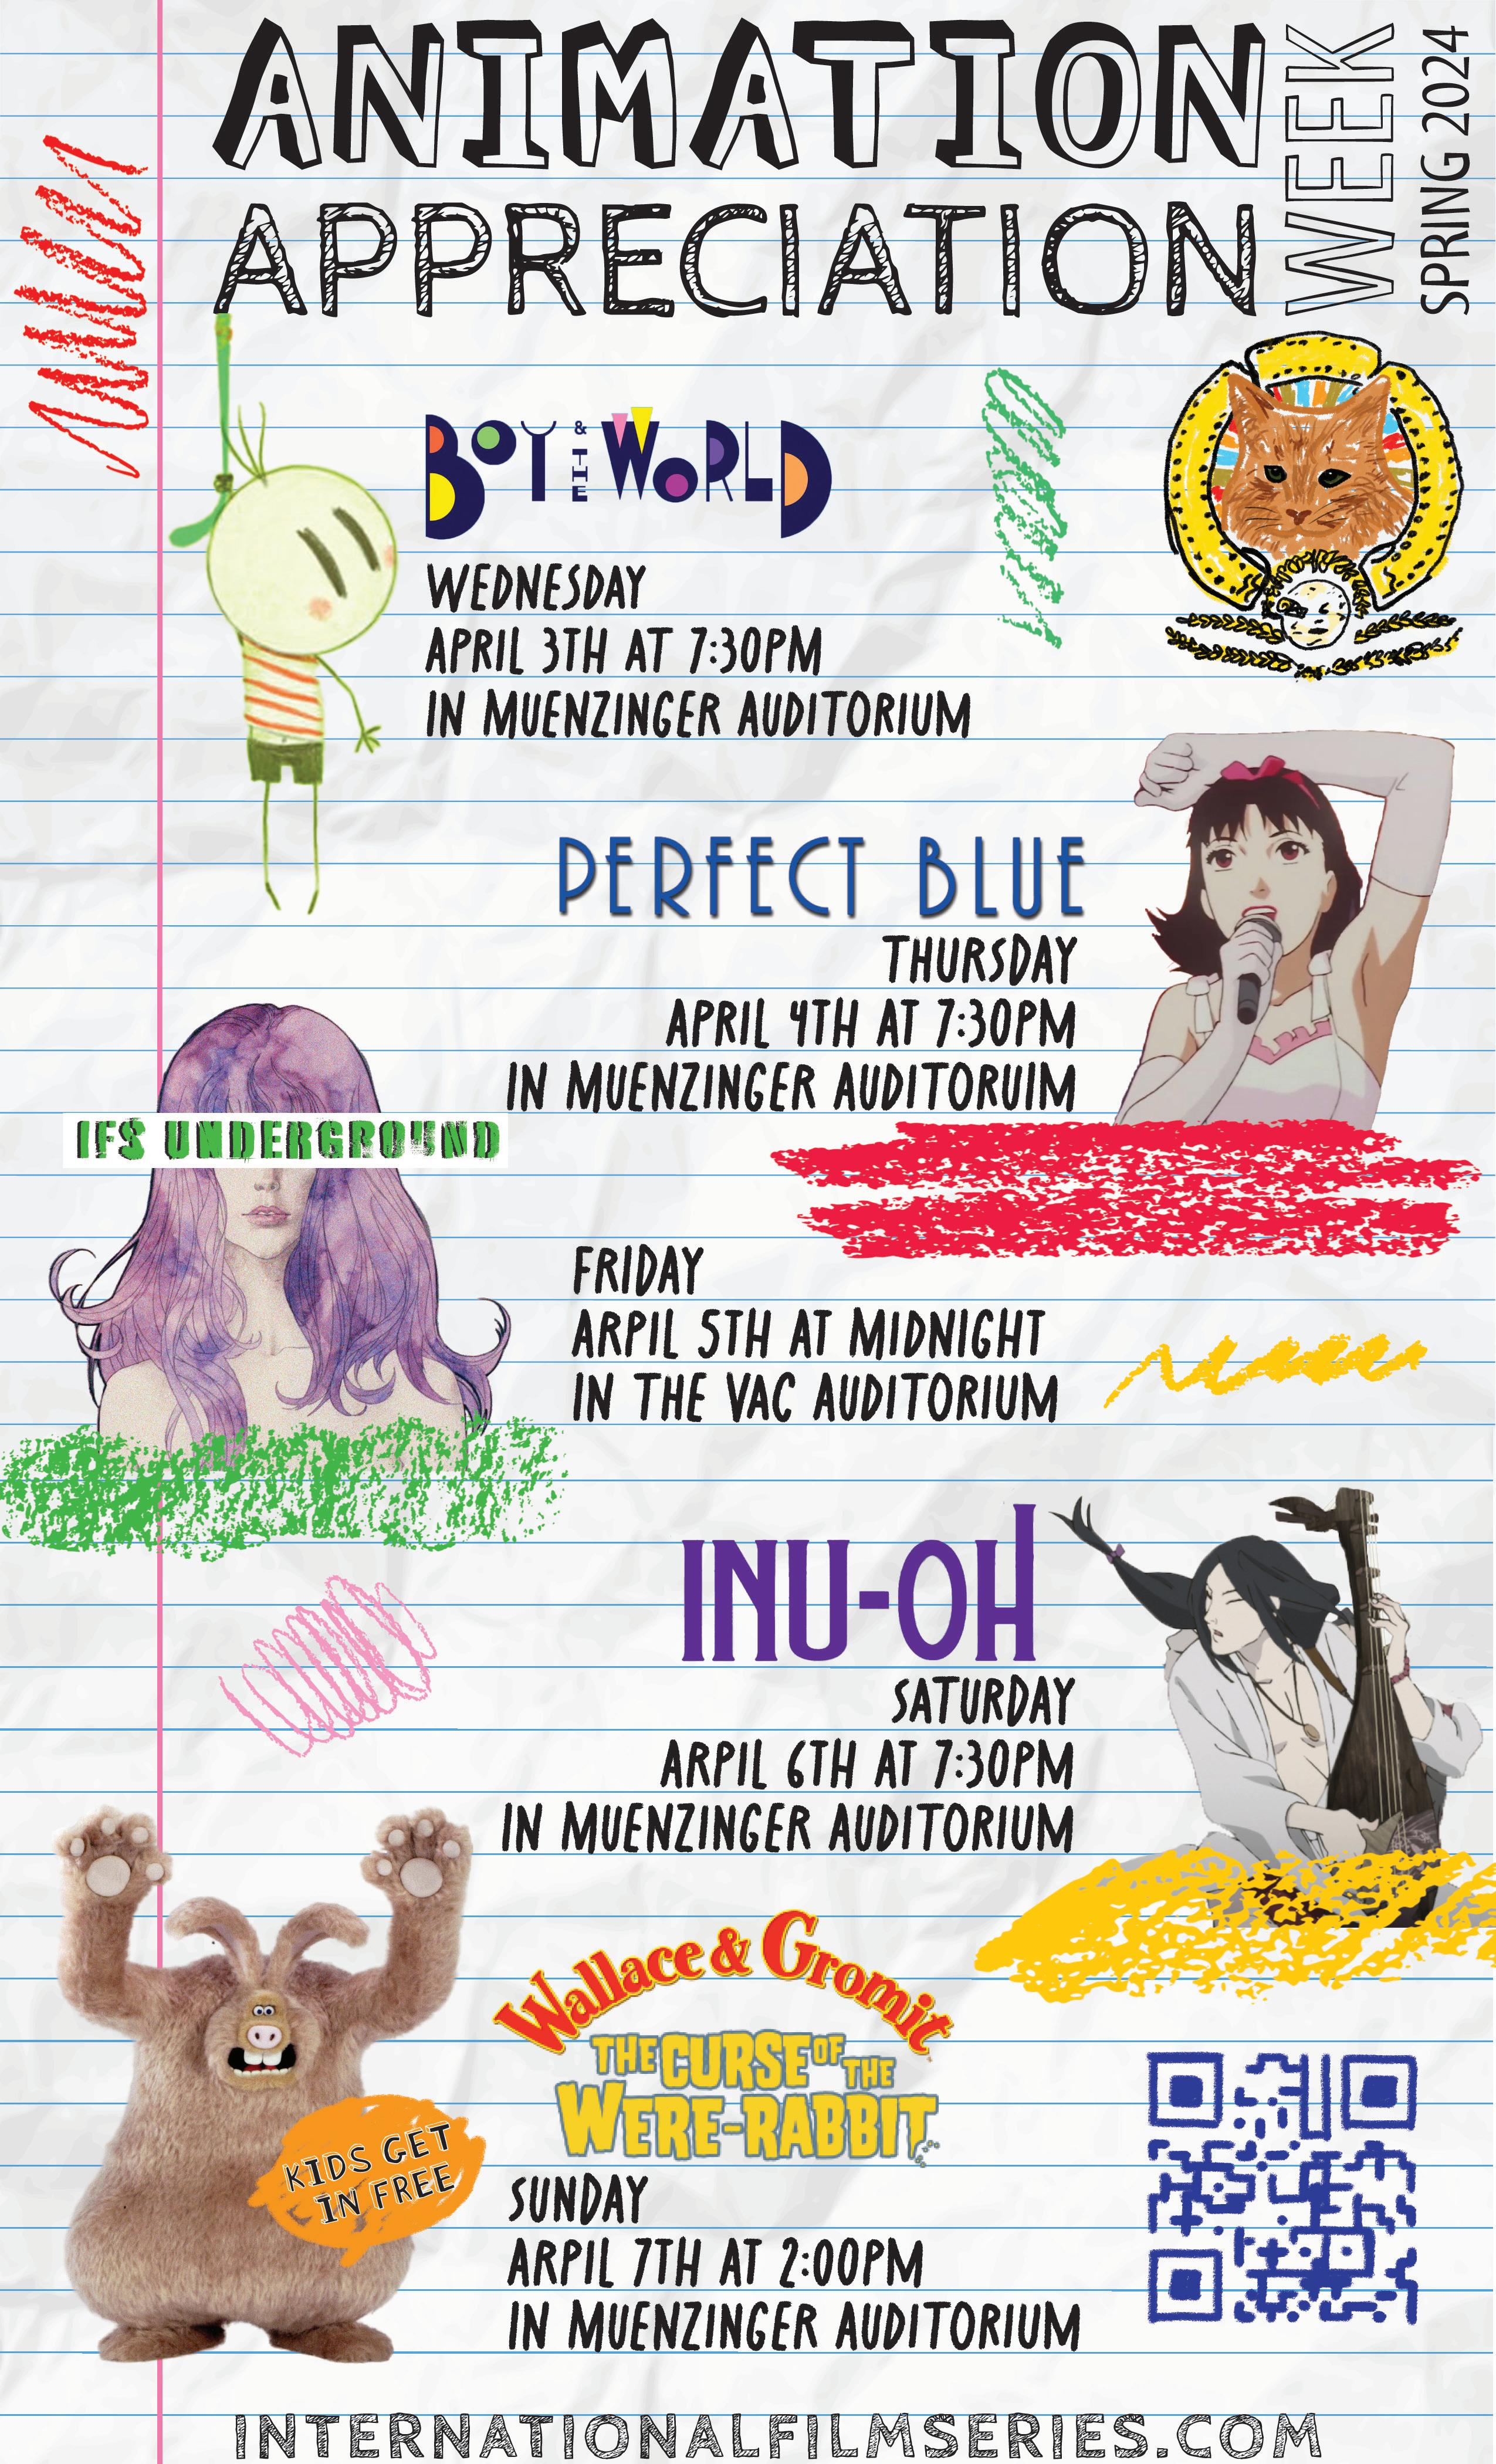 ANIMATION
APPRECIATION
WEEK
SPRING 2024
BOY & THE WORLD
WEDNESDAY
APRIL 3TH AT 7:30PM
IN MUENZINGER AUDITORIUM
PERFECT BLUE
THURSDAY
APRIL 4TH AT 7:30PM
IN MUENZINGER AUDITORUIM
IFS UNDERGROUND
FRIDAY
ARPIL 5TH AT MIDNIGHT
IN THE VAC AUDITORIUM
INU-OH
SATURDAY
ARPIL 6TH AT 7:30PM
IN MUENZINGER AUDITORIUM
Wallace & Gromit
THE CURSE OF THE
WERE-RABBIT
KIDS GET
IN FREE
SUNDAY
ARPIL 7TH AT 2:00PM
IN MUENZINGER AUDITORIUM
INTERNATIONALFILMSERIES.COM